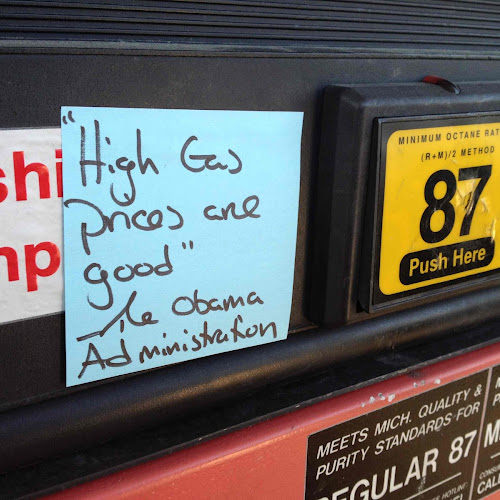 shi
mp
"High Gas
prices are
good"
–The Obama
Administration
MINIMUM OCTANE RAT
(R+M)/2 METHOD
87
Push Here
MEETS MICH. QUALITY &
PURITY STANDARDS FOR
EGULAR 87